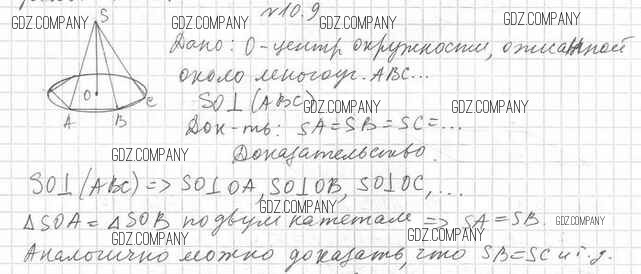 №10.9
GDZ.COMPANY GDZ.COMPANY GDZ.COMPANY
S
Дано: О-центр окружности, описанной
около многоуг. ABC...
SO⊥(ABC)
GDZ.COMPANY GDZ.COMPANY
O
C
A B
Док-ть: SA=SB=SC=...
GDZ.COMPANY
Доказательство.
SO⊥(ABC) => SO⊥OA, SO⊥OB, SO⊥OC, ...
GDZ.COMPANY
△SOA = △SOB по двум катетам => SA=SB.
GDZ.COMPANY
GDZ.COMPANY GDZ.COMPANY
Аналогично можно доказать, что SB=SC и т.д.